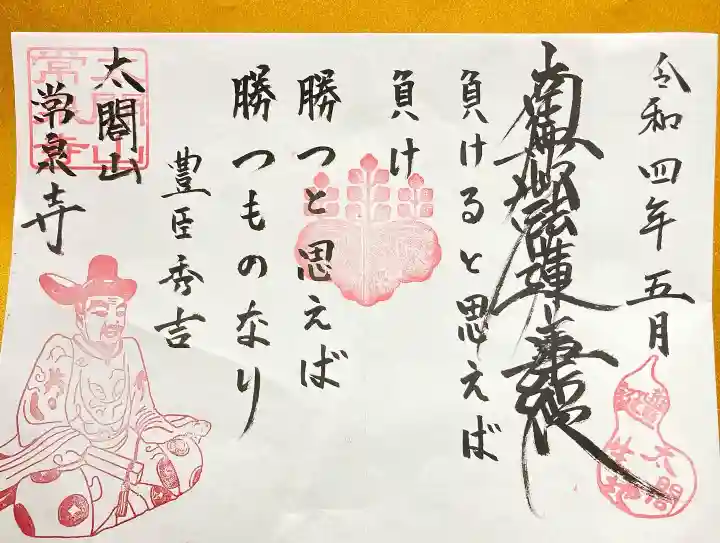 令和四年五月
南無妙法蓮華経
負けると思えば
負け
勝つと思えば
勝つものなり
豊臣秀吉
太閤山
常泉寺
太閤山
常泉寺
豊公誕生
太閤